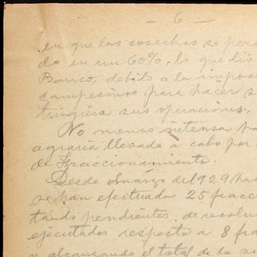 - 6 -
en que las cosechas se per
do en un 60%, lo que dió
Banco, debido a la impos
campesinos para hacer s
tringiera sus operaciones.
No menos intensa ha
agraria llevada a cabo por
de Fraccionamiento.
Desde Marzo del 929 ha
se han efectuado 25 fracc
tando pendientes de resolu
ejecutados respecto a 8 fra
y alcanzando el total de la